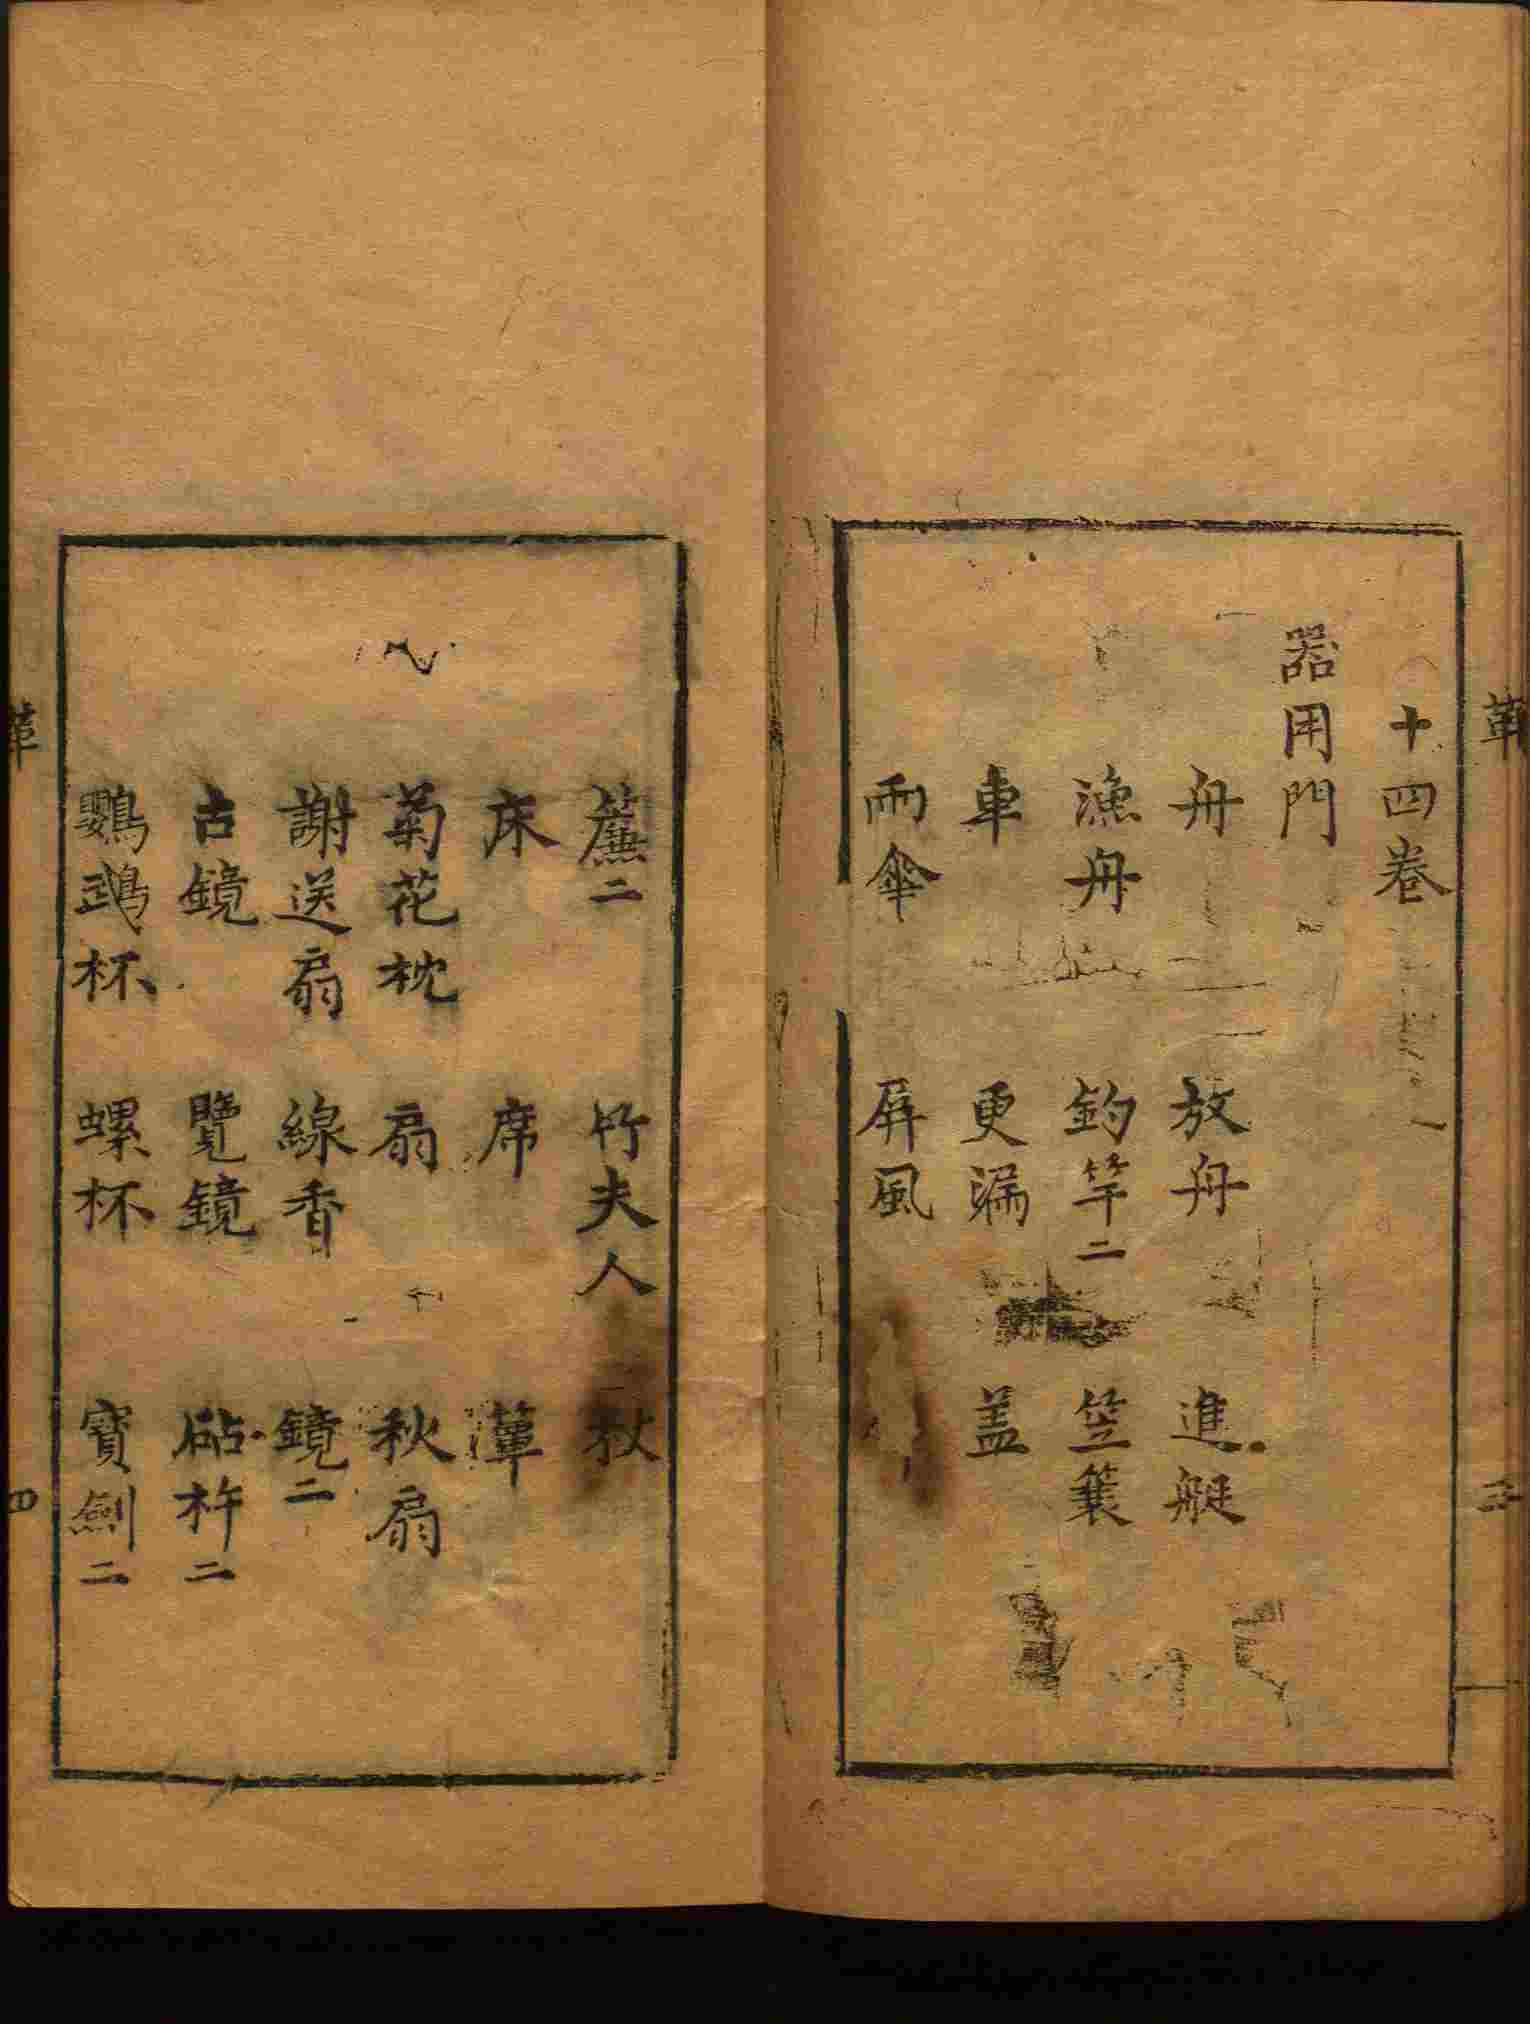 十四卷
器用門
舟 放舟 進艇
漁舟 釣竿二 笠簑
車 更漏 盖
雨傘 屏風
簾二 竹夫人
床 席 簟
菊花枕 扇 秋扇
謝送扇 線香 鏡二
古鏡 覽鏡 砧杵二
鸚鵡杯 螺杯 寶劍二